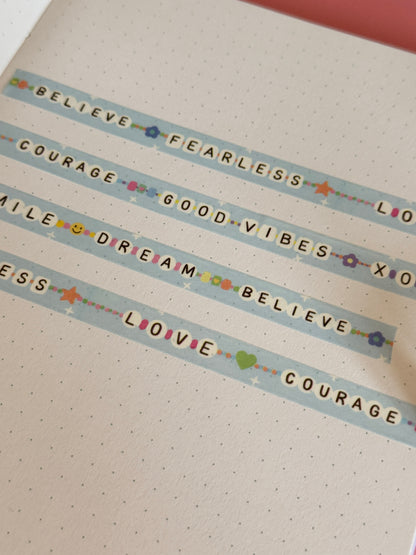 BELIEVE FEARLESS LO
COURAGE GOOD VIBES XO
MILE DREAM BELIEVE
ESS LOVE COURAGE